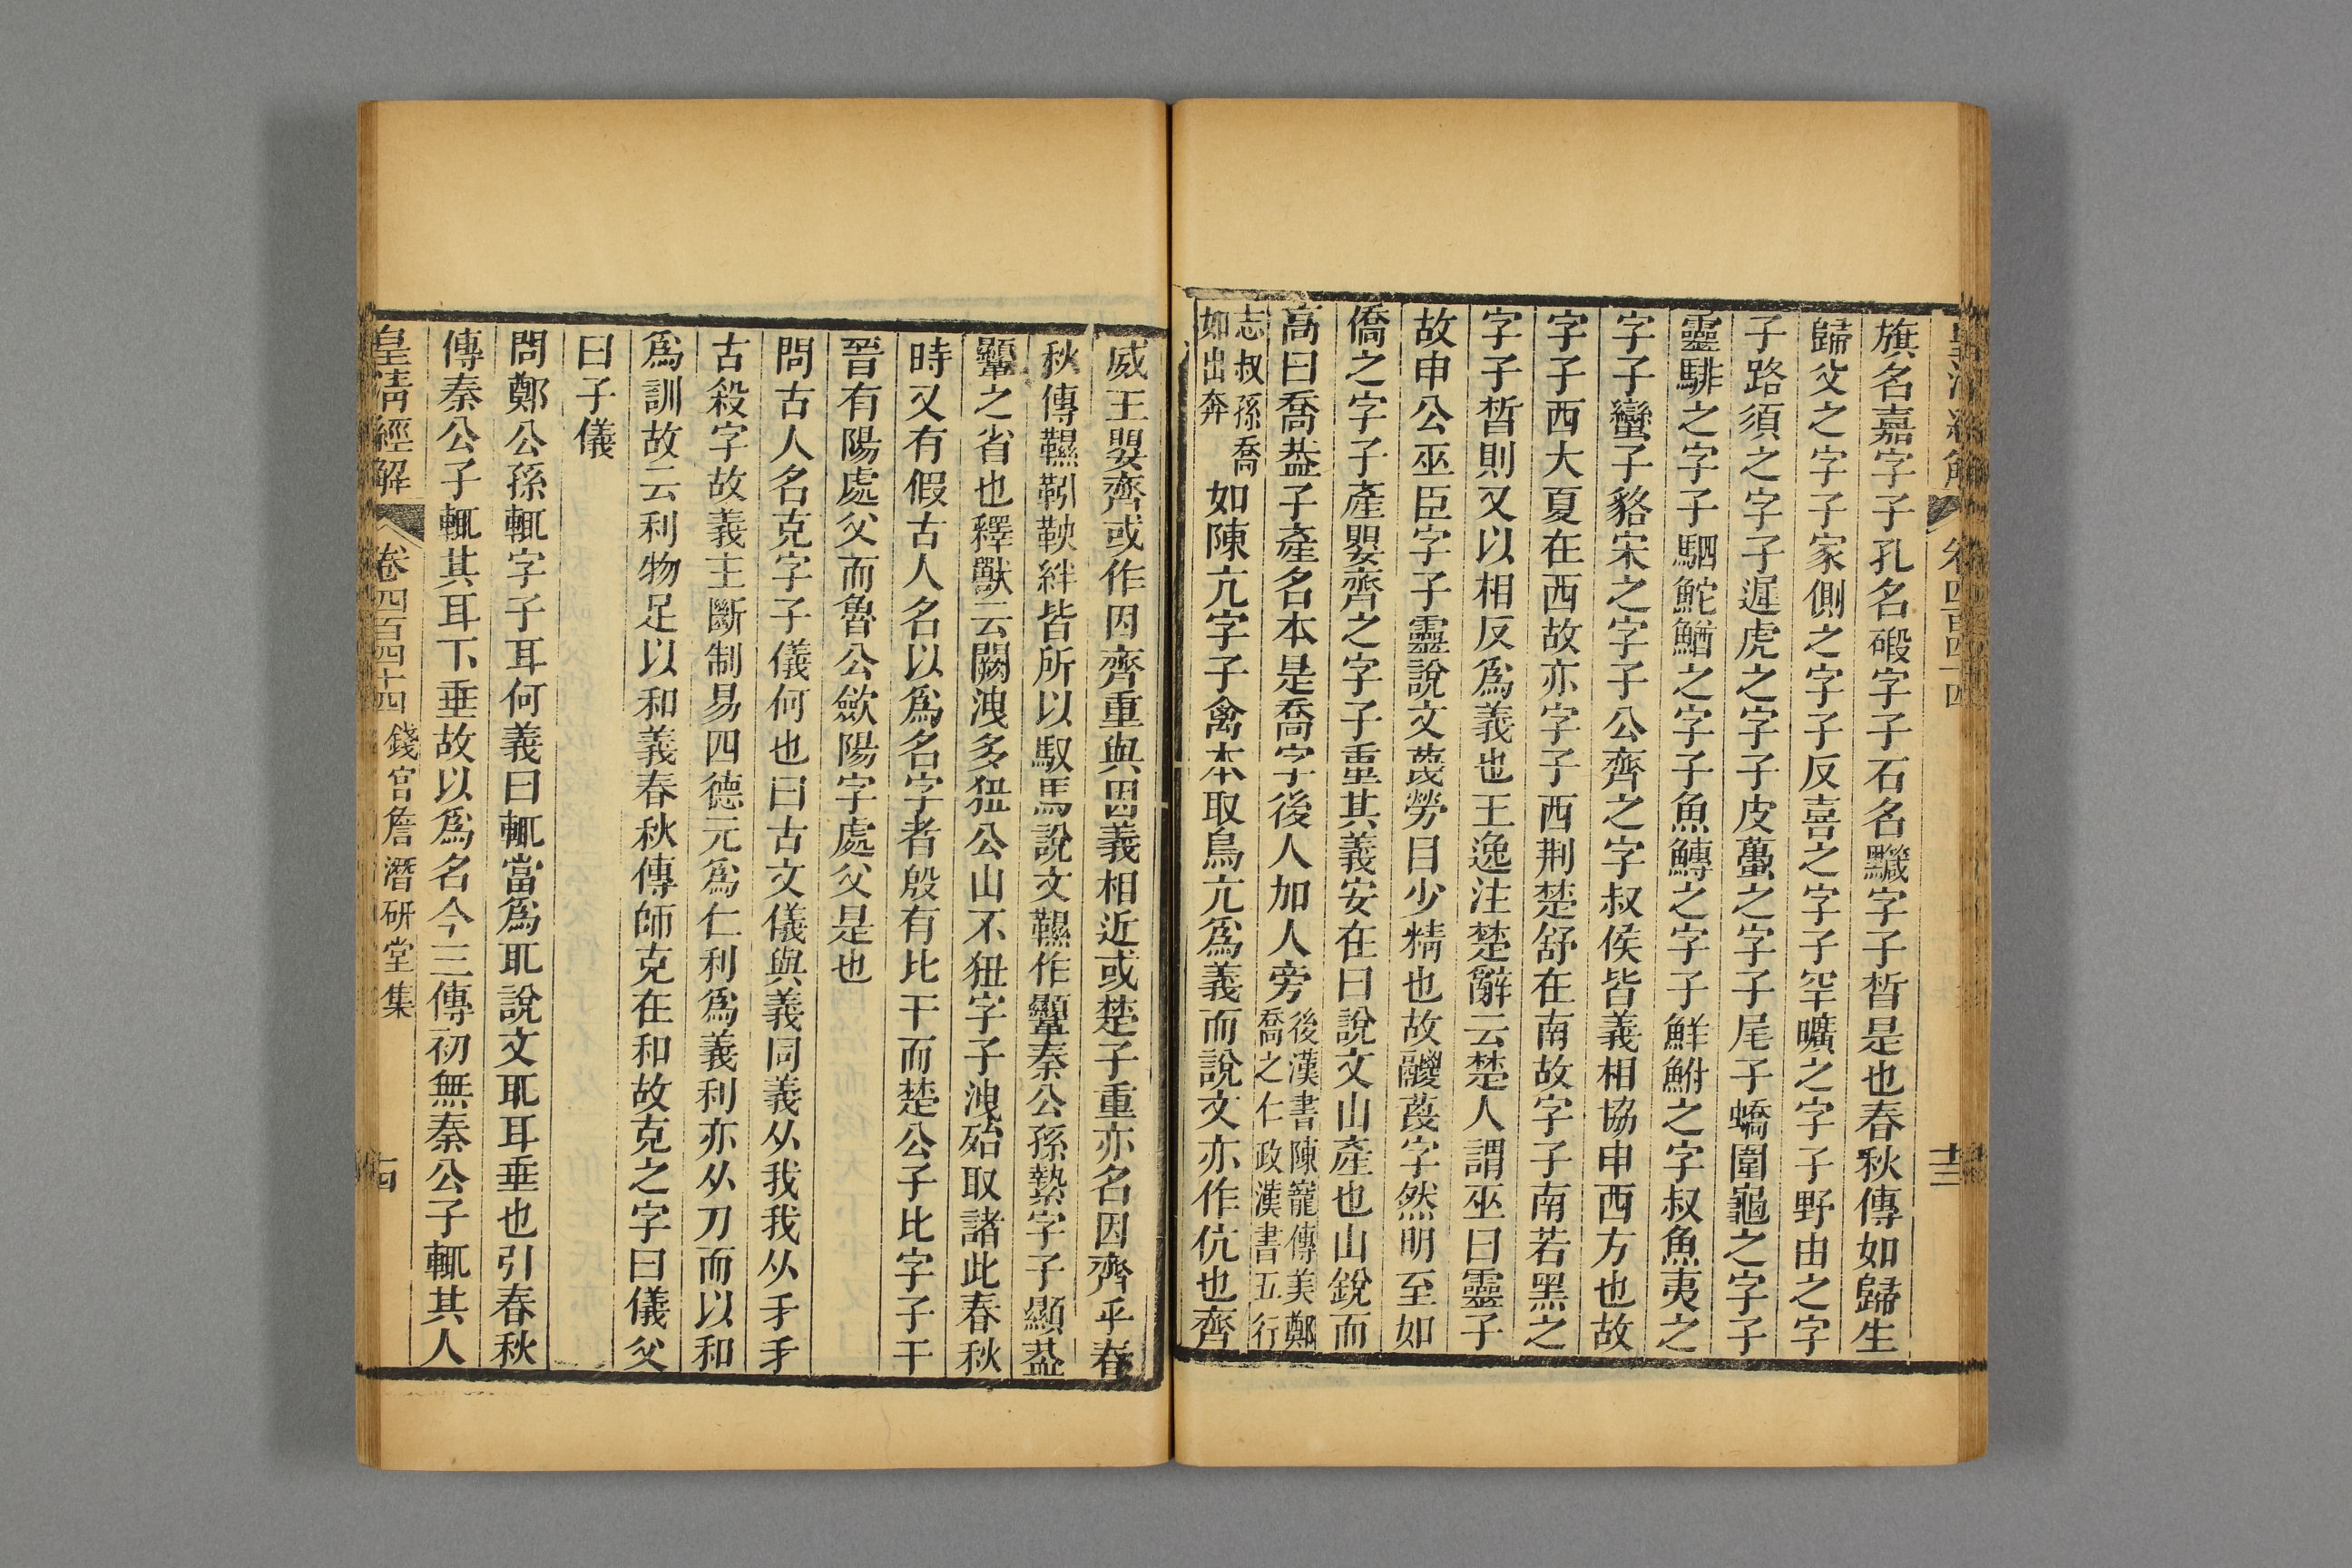 皇清經解 卷四百四十四 十三
旗名嘉字子孔名碬字子石名黬字子晳是也春秋傳如歸生
歸父之字子家側之字子反喜之字子罕曠之字子野由之字
子路須之字子遲虎之字子皮蠆之字子尾子蟜圍龜之字子
靈騑之字子駟鮀鰌之字子魚鱄之字子鮮鮒之字叔魚夷之
字子蠻子貉宋之字子公齊之字叔侯皆義相協申西方也故
字子西大夏在西故亦字子西荆楚舒在南故字子南若黑之
字子晳則又以相反爲義也王逸注楚辭云楚人謂巫曰靈子
故申公巫臣字子靈說文蔑勞目少精也故鬷蔑字然明至如
僑之字子產嬰齊之字子重其義安在曰說文山產也山銳而
高曰喬葢子產名本是喬字後人加人旁後漢書陳寵傳美鄭喬之仁政漢書五行
志叔孫喬如出奔如陳亢字子禽本取鳥亢爲義而說文亦作伉也齊
威王嬰齊或作因齊重與因義相近或楚子重亦名因齊乎春
秋傳韅靷鞅絆皆所以馭馬說文韅作䪗秦公孫縶字子顯葢
䪗之省也釋獸云闕洩多狃公山不狃字子洩殆取諸此春秋
時又有假古人名以爲名字者殷有比干而楚公子比字子干
晉有陽處父而魯公歛陽字處父是也
問古人名克字子儀何也曰古文儀與義同義从我我从手手
古殺字故義主斷制易四德元爲仁利爲義利亦从刀而以和
爲訓故云利物足以和義春秋傳師克在和故克之字曰儀父
曰子儀
問鄭公孫輒字子耳何義曰輒當爲耴說文耴耳垂也引春秋
傳秦公子輒其耳下垂故以爲名今三傳初無秦公子輒其人
皇清經解 卷四百四十四 錢宮詹潛研堂集 十四